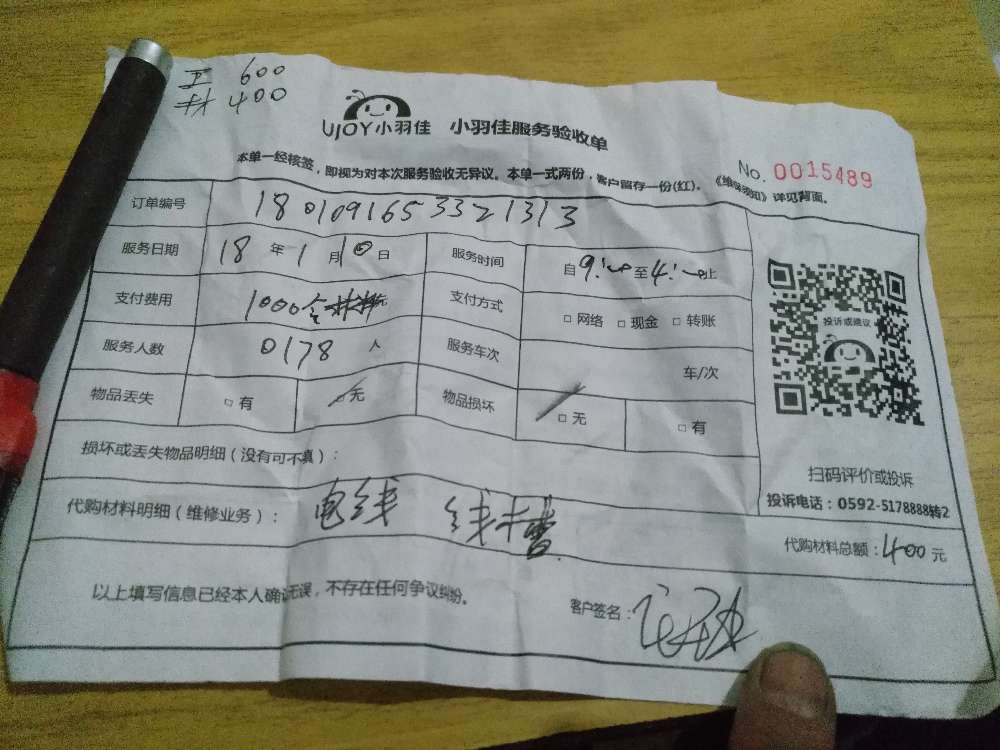 工 600
材 400
UJOY小羽佳 小羽佳服务验收单
No. 0015489
本单一经核签，即视为对本次服务验收无异议。本单一式两份，客户留存一份(红)。《维保须知》详见背面。
订单编号 180109165332 1313
服务日期 18 年 1 月 10 日 服务时间 自 9: 至 4: 止
支付费用 1000含材料元 支付方式 □ 网络 □ 现金 □ 转账
服务人数 0178 人 服务车次 车/次
物品丢失 □ 有 □ 无 物品损坏 □ 无 □ 有
投诉或建议
损坏或丢失物品明细（没有可不填）：
扫码评价或投诉
投诉电话：0592-5178888转2
代购材料明细（维修业务）： 电线 线卡
代购材料总额：400元
以上填写信息已经本人确认无误，不存在任何争议纠纷。
客户签名：